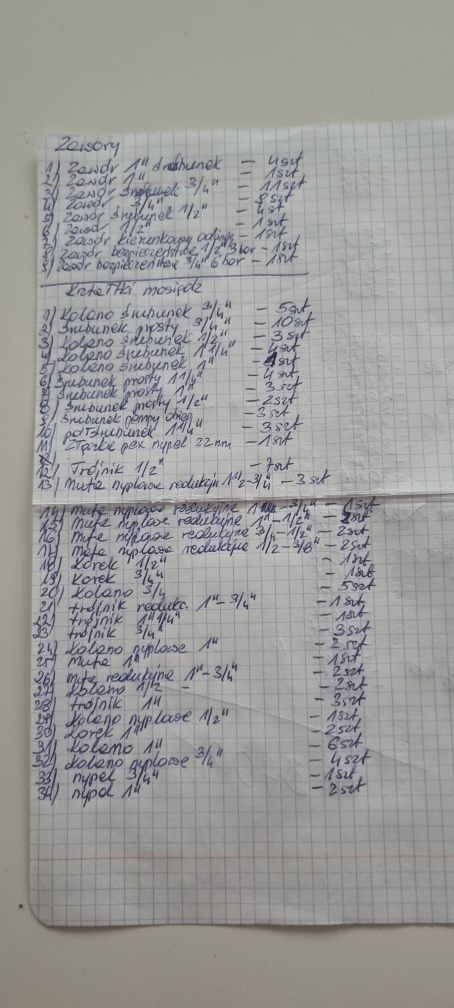 Zawory
1) Zawór 1" śrubunek - 4szt
2) Zawór 1" - 1szt
3) Zawór śrubunek 3/4" - 11szt
4) Zawór 3/4" - 8szt
5) Zawór śrubunek 1/2" - 4szt
6) Zawór 1/2" - 1szt
7) Zawór kierunkowy - 1szt
8) Zawór bezpieczeństwa 1/2" 3bar - 1szt
9) Zawór bezpieczeństwa 3/4" 6bar - 1szt
Kształtki mosiądz
1) Kolano śrubunek 3/4" - 5szt
2) Śrubunek prosty 3/4" - 10szt
3) Kolano śrubunek 1/2" - 3szt
4) Kolano śrubunek 1 1/4" - 4szt
5) Kolano śrubunek 1" - szt
6) Śrubunek prosty 1 1/4" - 4szt
7) Śrubunek prosty 1" - 3szt
8) Śrubunek prosty 1/2" - 2szt
9) Śrubunek pompy - 3szt
10) półśrubunek 1 1/4" - 3szt
11) pex nypel 22mm - 1szt
12) Trójnik 1/2" - 7szt
13) Mufa nyplowa redukcyjn 1"-3/4 - 3szt
14) Mufa nyplowa redukcyjne 3/4" - 1szt
15) Mufa nyplowa redukcyjne 1"-1/2" - 2szt
16) Mufa nyplowa redukcyjne 3/4-1/2" - 2szt
17) Mufa nyplowa redukcyjne 1/2-3/8" - 2szt
18) Korek 1/2" - 1szt
19) Korek 3/4" - 1szt
20) Kolano 3/4 - 5szt
21) trójnik redukc. 1"-3/4" - 1szt
22) trójnik 1"1/4" - 1szt
23) trójnik 3/4" - 3szt
24) Kolano nyplowe 1" - 2szt
25) Mufa 1" - 1szt
26) Mufa redukcyjna 1"-3/4" - 2szt
27) Kolano 1/2 - - 2szt
28) trójnik 1" - 3szt
29) Kolano nyplowe 1/2" - 1szt
30) Korek 1" - 2szt
31) Kolano 1" - 6szt
32) Kolano nyplowe 3/4" - 4szt
33) nypel 3/4" - 1szt
34) nypel 1" - 2szt